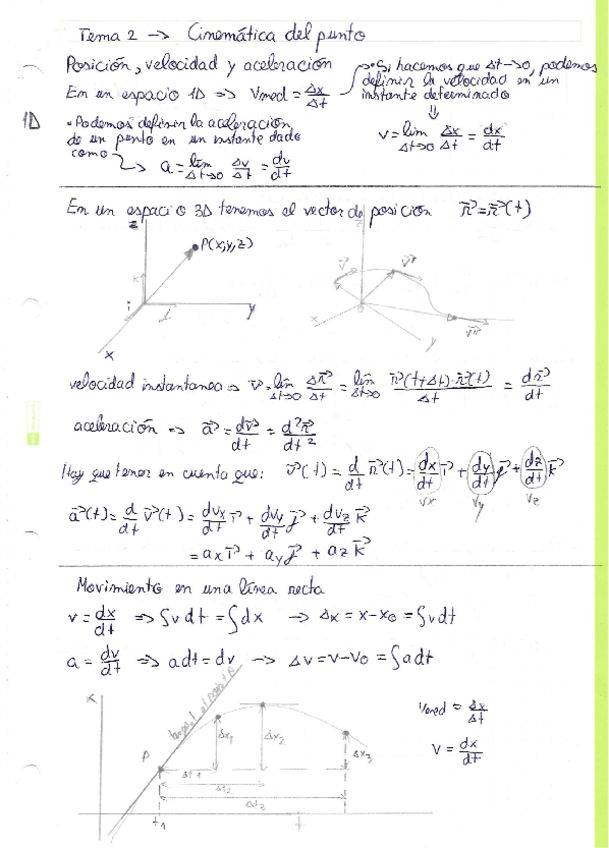 Tema 2 → Cinemática del punto
Posición, velocidad y aceleración
En un espacio 1D ⇒ Vmed = Δx/Δt
• Si hacemos que Δt→0, podemos
definir la velocidad en un
instante determinado
⇓
v = lim Δt→0 Δx/Δt = dx/dt
1D
• Podemos definir la aceleración
de un punto en un instante dado
como → a = lim Δt→0 Δv/Δt = dv/dt
En un espacio 3D tenemos el vector de posición r⃗ = r⃗(t)
z
P(x,y,z)
y
x
z
v⃗
v⃗
v⃗
x
y
velocidad instantanea ⇒ v⃗ = lim Δt→0 Δr⃗/Δt = lim Δt→0 r⃗(t+Δt)-r⃗(t)/Δt = dr⃗/dt
aceleración ⇒ a⃗ = dv⃗/dt = d²r⃗/dt²
Hay que tener en cuenta que: v⃗(t) = d/dt r⃗(t) = dx/dt i⃗ + dy/dt j⃗ + dz/dt k⃗
Vx Vy Vz
a⃗(t) = d/dt v⃗(t) = dvx/dt i⃗ + dvy/dt j⃗ + dvz/dt k⃗
= ax i⃗ + ay j⃗ + az k⃗
Movimiento en una línea recta
v = dx/dt ⇒ ∫v dt = ∫dx → Δx = x-x0 = ∫v dt
a = dv/dt ⇒ a dt = dv → Δv = v-v0 = ∫a dt
x
P
Δx1
Δx2
Δx3
Δt1
Δt2
Δt3
t1
t
Vmed = Δx/Δt
v = dx/dt